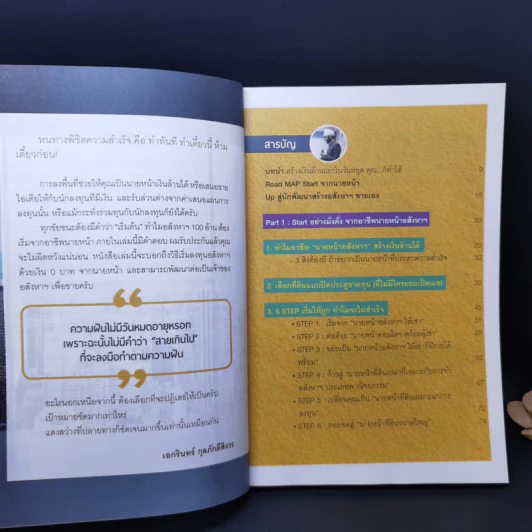 หนทางพิชิตความสำเร็จ คือ ทำทันที ทำเดี๋ยวนี้ ห้าม
เดี๋ยวก่อน!
การลงพื้นที่ช่วยให้คุณเป็นนายหน้าเงินล้านได้ หรือเสนอขาย
ไอเดียให้กับนักลงทุนที่มีเงิน และรับส่วนต่างจากค่าเสนอแผนการ
ลงทุนนั้น หรือแม้กระทั่งร่วมทุนกับนักลงทุนก็ยังได้ครับ
ทุกชัยชนะต้องมีคำว่า "เริ่มต้น" ทำไมอสังหาฯ 100 ล้าน ต้อง
เริ่มจากอาชีพนายหน้า ภายในเล่มนี้มีคำตอบ ผมรับประกันแล้วคุณ
จะไม่ผิดหวังแน่นอน หนังสือเล่มนี้จะบอกถึงวิธีเริ่มลงทุนอสังหาฯ
ด้วยเงิน 0 บาท จากนายหน้า และสามารถพัฒนาต่อเป็นเจ้าของ
อสังหาฯ เพื่อขายครับ
ความฝันไม่มีวันหมดอายุหรอก
เพราะฉะนั้นไม่มีคำว่า "สายเกินไป"
ที่จะลงมือทำตามความฝัน
อะไรนอกเหนือจากนี้ ต้องเลือกที่จะปฏิเสธให้เป็นครับ
เป้าหมายชัดมากเท่าไหร่
แสงสว่างที่ปลายทางก็ชัดเจนมากขึ้นเท่านั้นเหมือนกัน
เอกรินทร์
สารบัญ
บทนำ สร้างเงินล้านแรกในวันหยุด คุณ...ก็ทำได้ 9
Road MAP Start จากนายหน้า
Up สู่นักพัฒนาสร้างอสังหาฯ ขายเอง
Part 1 : Start อย่างมั่งคั่ง จากอาชีพนายหน้าอสังหาฯ
1. ทำไมอาชีพ "นายหน้าอสังหาฯ" สร้างเงินล้านได้
- 3 สิ่งต้องมี ถ้าอยากเป็นนายหน้าที่ประสบความสำเร็จ
2. เลือกที่ดินแบบปิดประตูขาดทุน
3. 6 STEP เริ่มให้ถูก ทำไงจะไม่สำเร็จ
• STEP 1 : เริ่มจาก "นายหน้าอสังหาฯ ให้เช่า"
• STEP 2 : ต่อด้วย
• STEP 3 : ขยับเป็น
พร้อม"
• STEP 4 : ก้าวสู่
อสังหาฯ ประเภทพาณิชยกรรม"
• STEP 5 : เปลี่ยนคุณเป็น
ลงทุน" 72
• STEP 6 : ต่อยอดสู่ "นายหน้าที่ดินขนาดใหญ่" 74